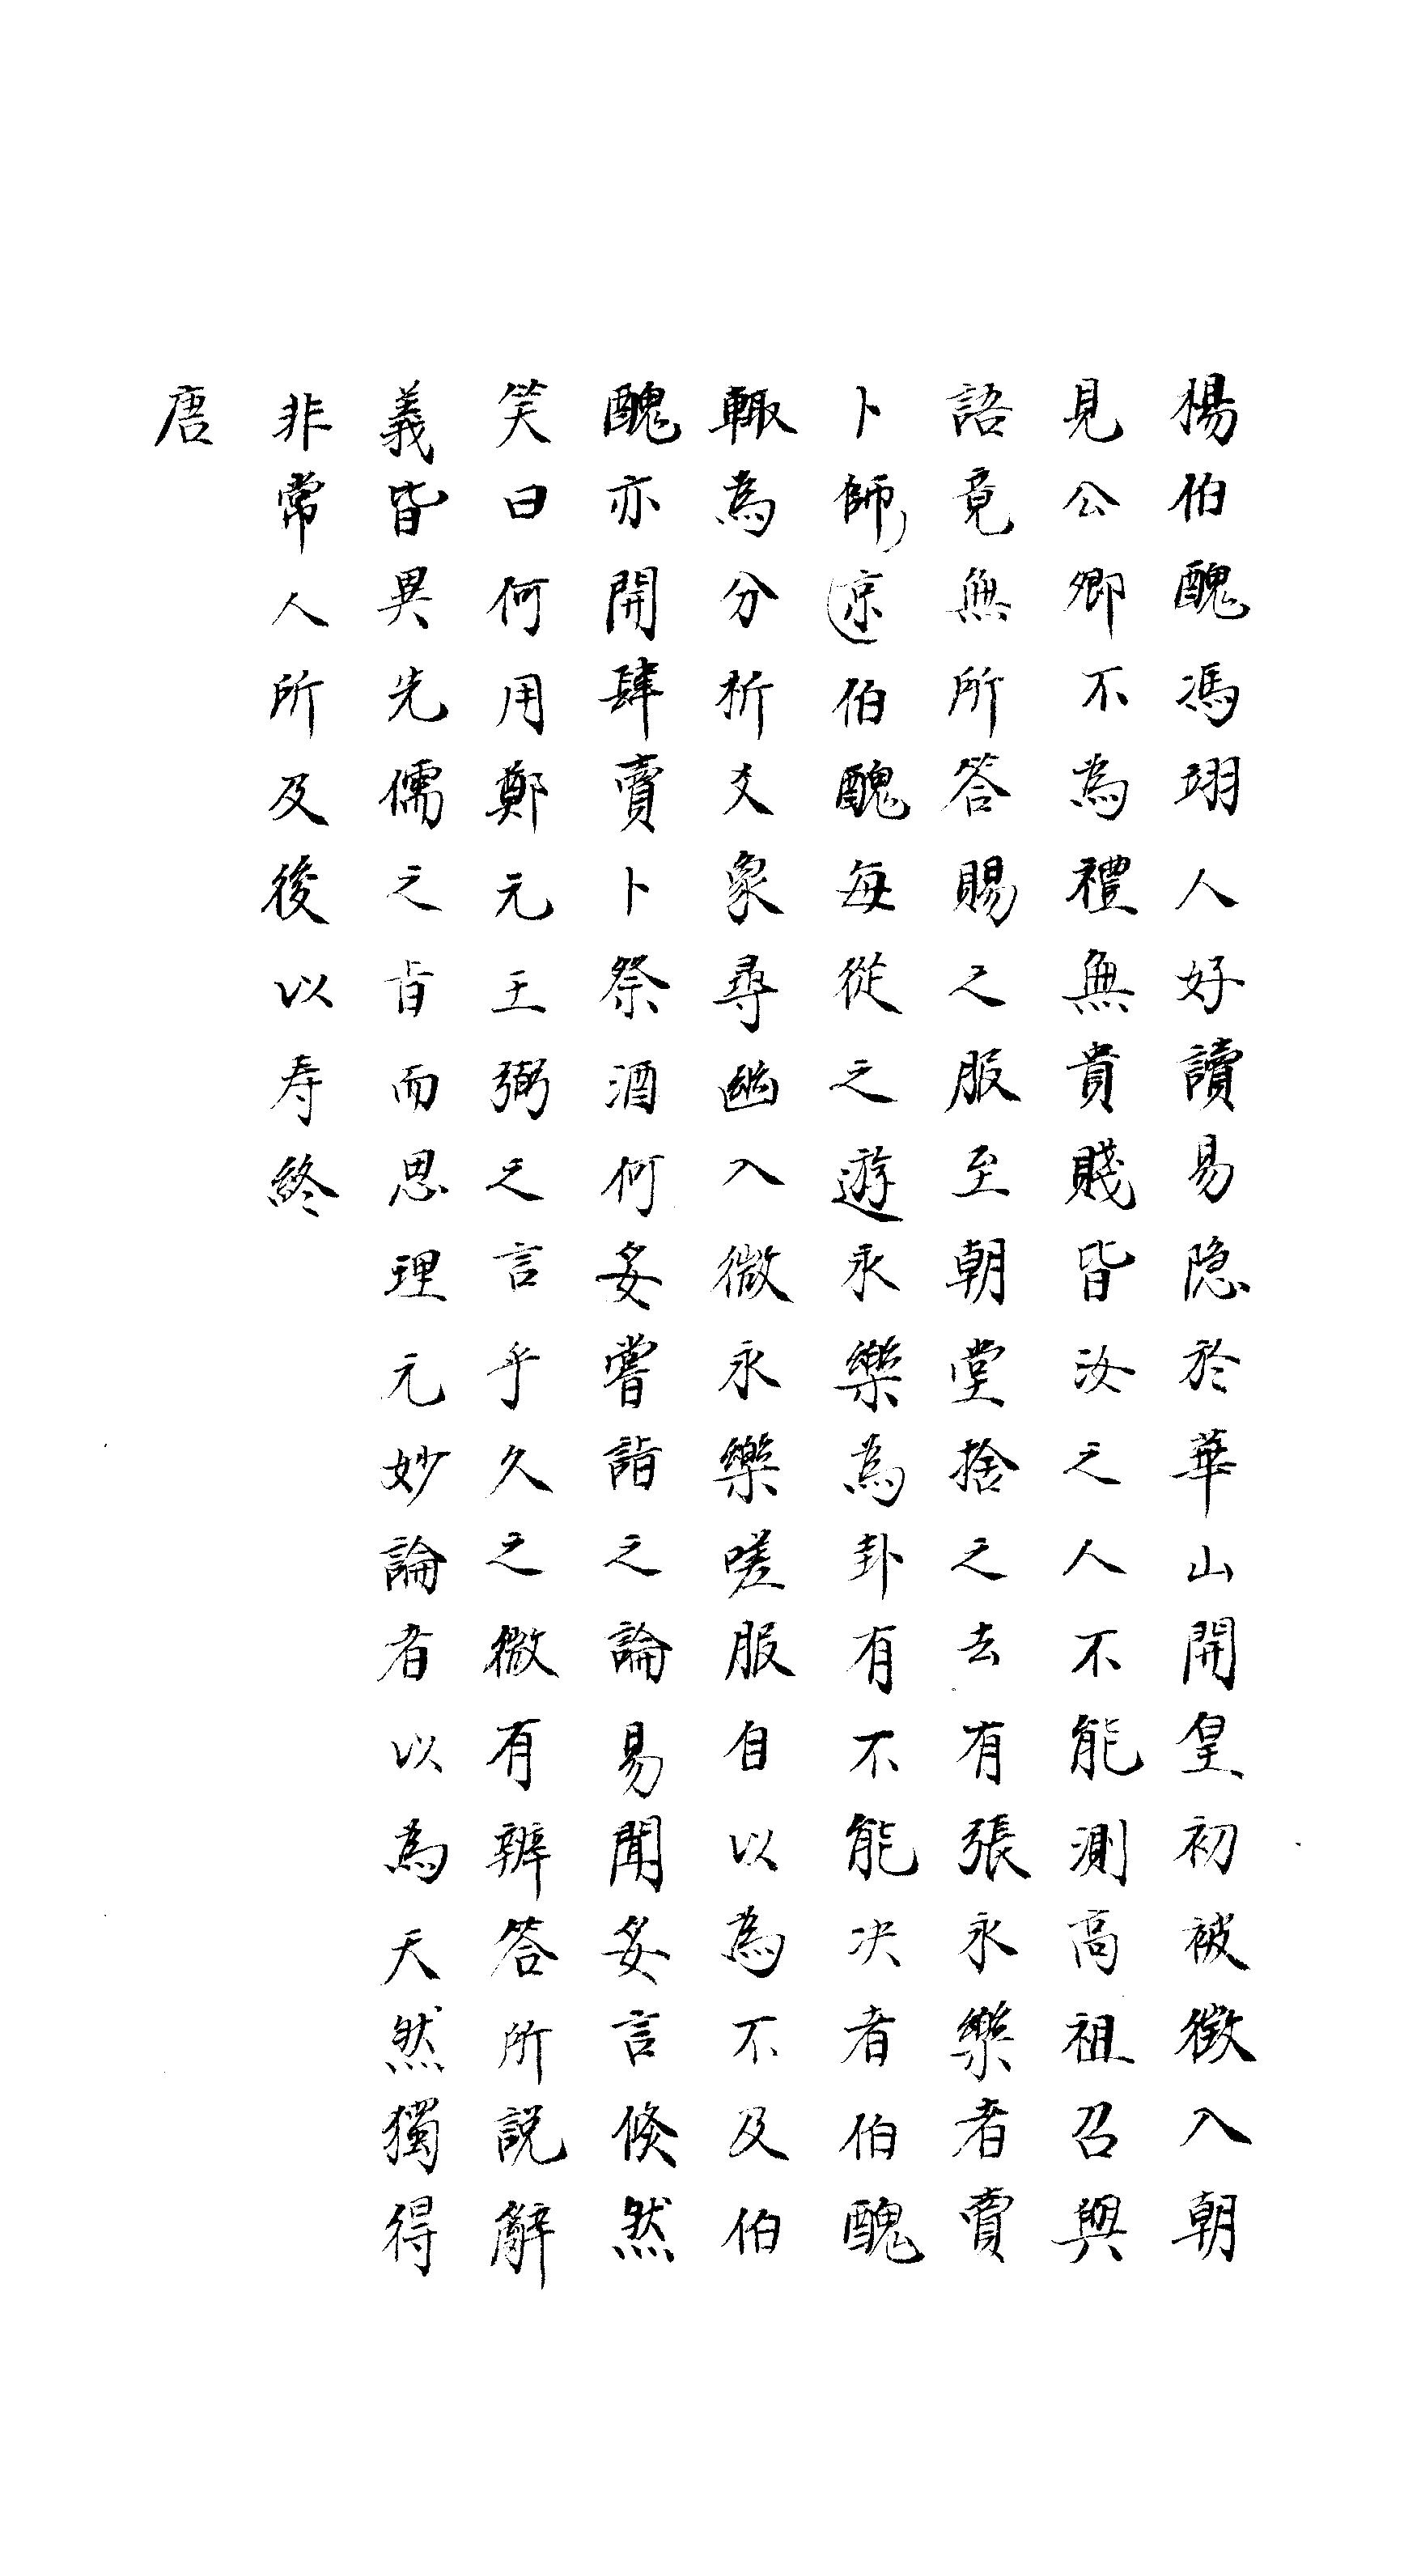 楊伯醜馮翊人好讀易隐於華山開皇初被徴入朝
見公卿不為禮無貴賤皆汝之人不能測高祖召與
語竟無所答賜之服至朝堂捨之去有張永樂者賣
卜師遼伯醜每從之遊永樂為卦有不能决者伯醜
輙為分析爻象尋幽入微永樂嗟服自以為不及伯
醜亦開肆賣卜祭酒何妥嘗詣之論易聞妥言倏然
笑曰何用鄭元王弼之言乎久之微有辨答所説辭
義皆異先儒之旨而思理元妙論者以為天然獨得
非常人所及後以寿終
唐